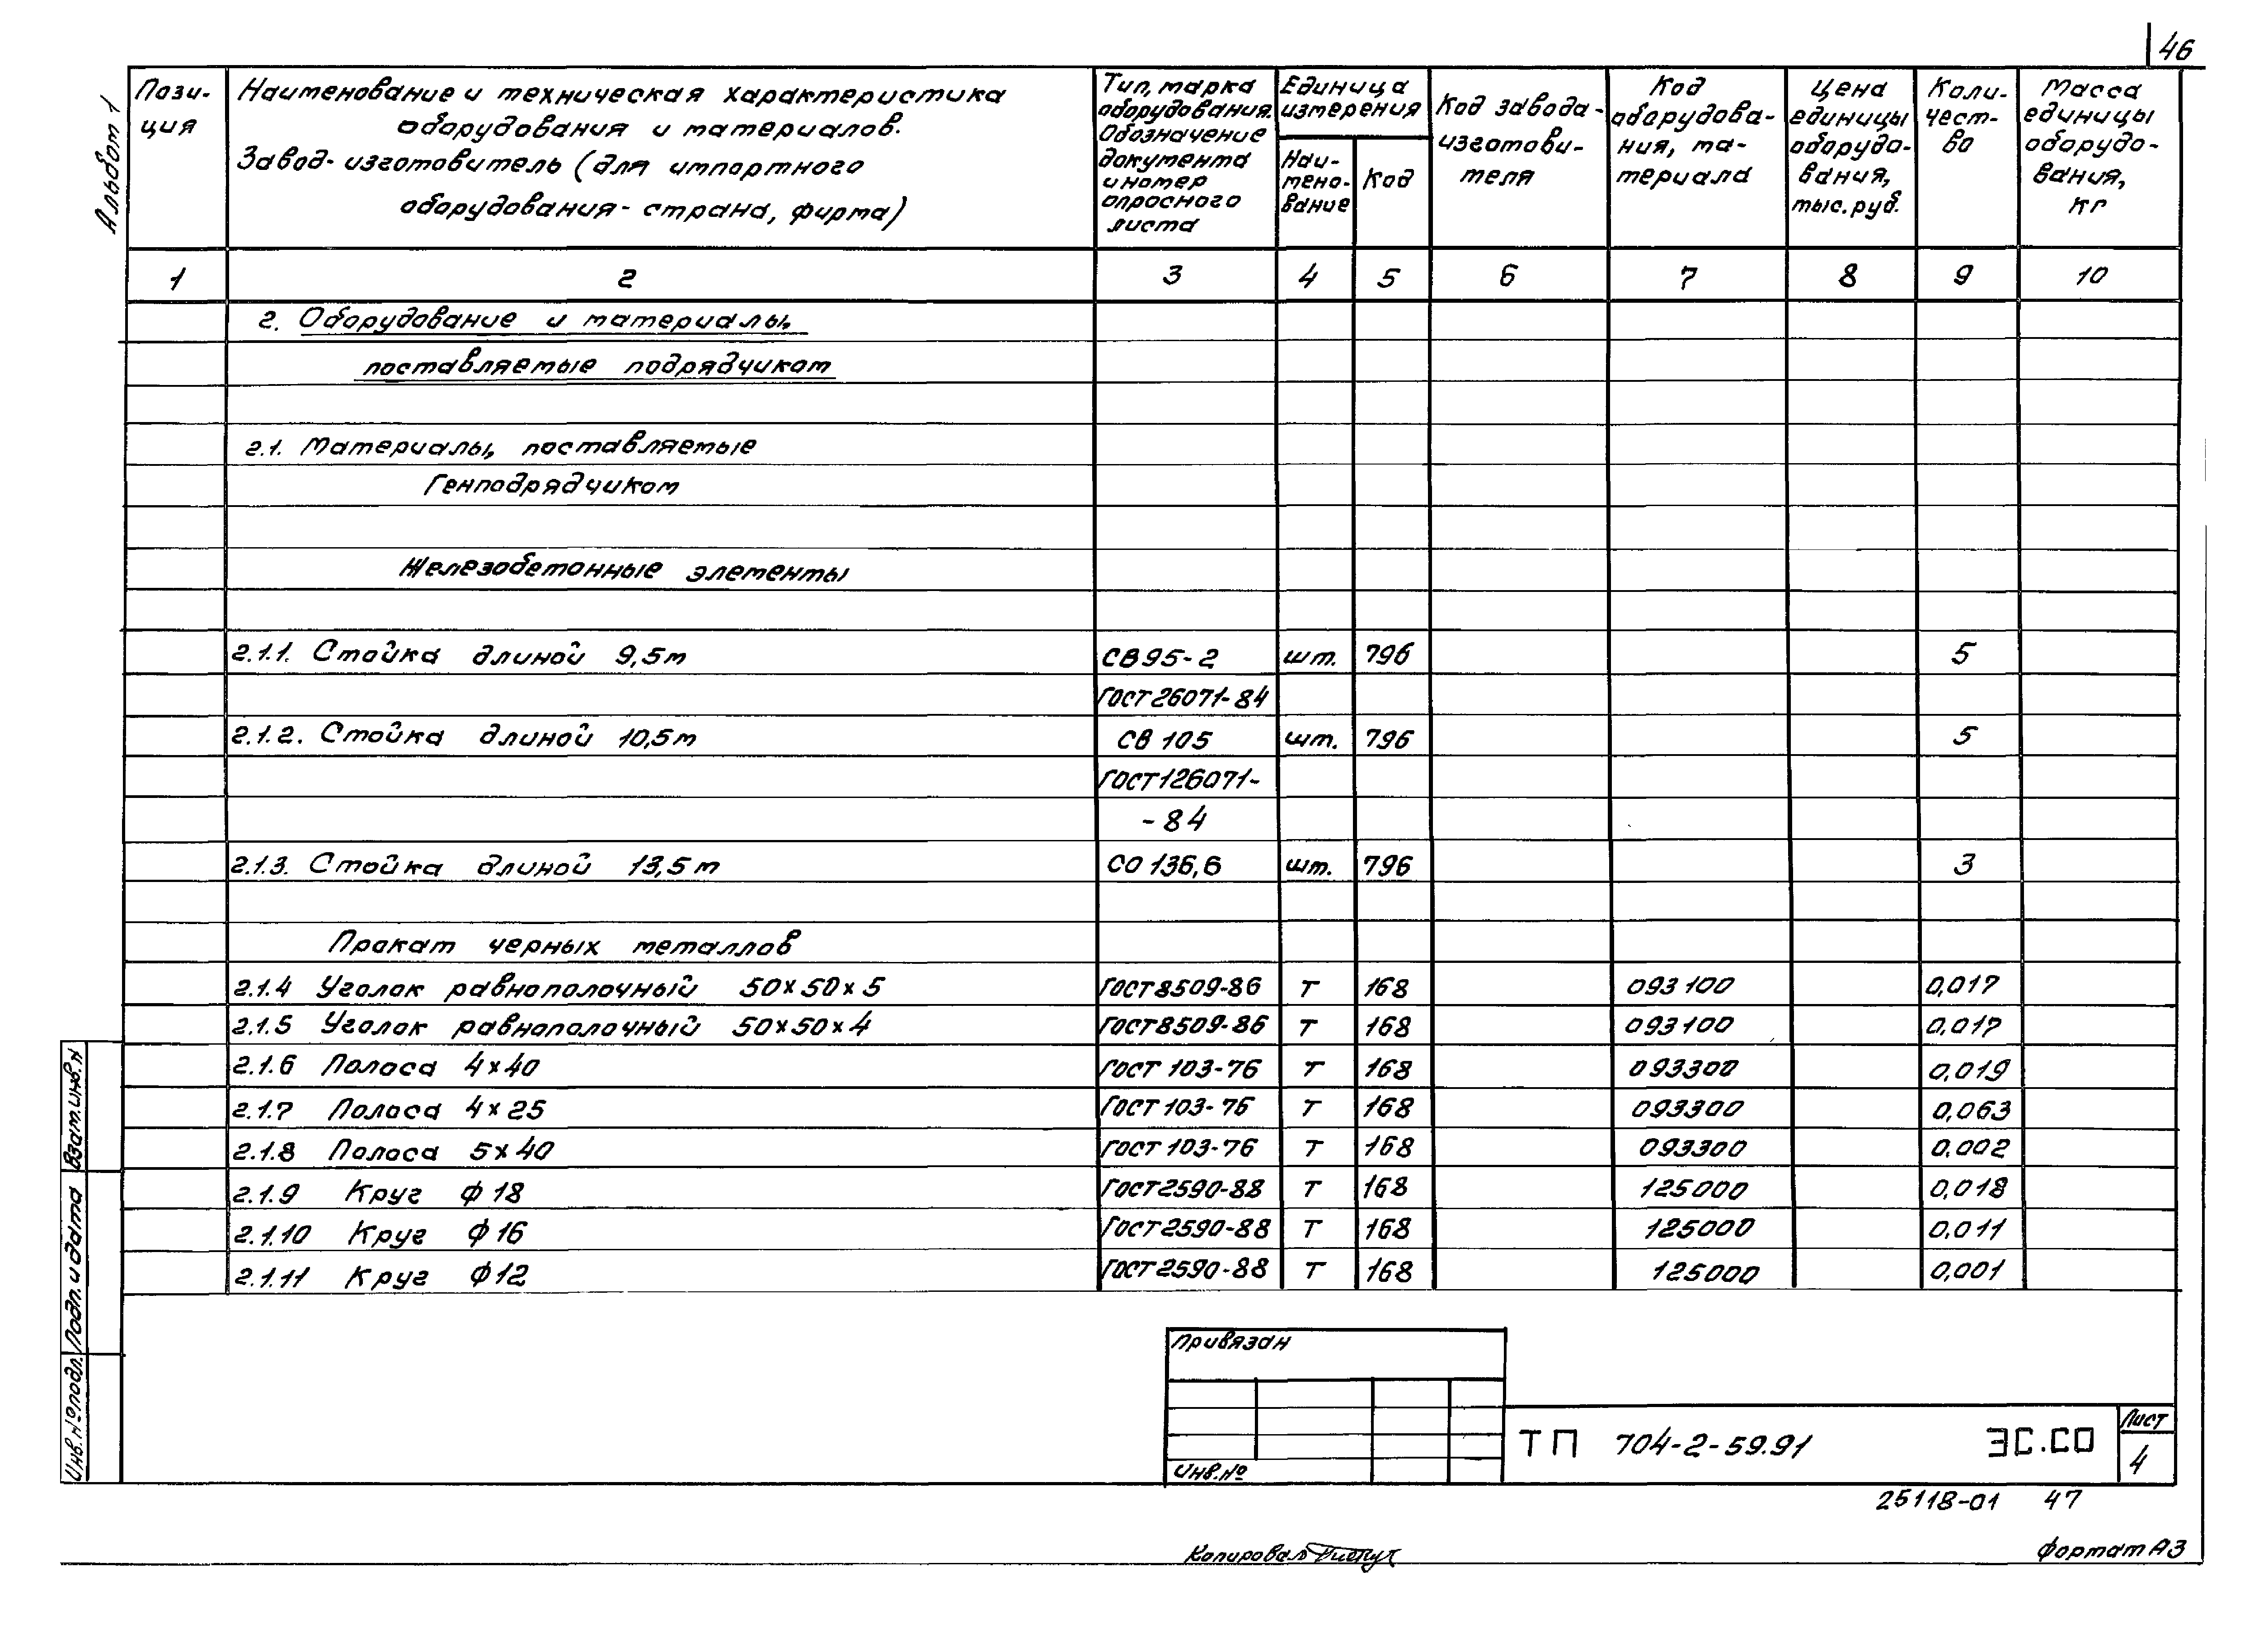 46
Альбом 1
Пози-
ция
Наименование и техническая характеристика
оборудования и материалов.
Завод-изготовитель (для импортного
оборудования - страна, фирма)
Тип, марка
оборудования.
Обозначение
документа
и номер
опросного
листа
Единица
измерения
Наи-
мено-
вание
Код
Код завода-
изготови-
теля
Код
оборудова-
ния, ма-
териала
Цена
единицы
оборудо-
вания,
тыс. руб.
Коли-
чест-
во
Масса
единицы
оборудо-
вания,
кг
1 2 3 4 5 6 7 8 9 10
2. Оборудование и материалы,
поставляемые подрядчиком
2.1. Материалы, поставляемые
Генподрядчиком
Железобетонные элементы
2.1.1. Стойка длиной 9,5м СВ95-2 шт. 796 5
ГОСТ26071-84
2.1.2. Стойка длиной 10,5м СВ 105 шт. 796 5
ГОСТ126071-
-84
2.1.3. Стойка длиной 13,5м СО 136,6 шт. 796 3
Прокат черных металлов
2.1.4 Уголок равнополочный 50×50×5 ГОСТ8509-86 Т 168 093100 0,017
2.1.5 Уголок равнополочный 50×50×4 ГОСТ8509-86 Т 168 093100 0,017
2.1.6 Полоса 4×40 ГОСТ 103-76 Т 168 093300 0,019
2.1.7 Полоса 4×25 ГОСТ 103-76 Т 168 093300 0,063
2.1.8 Полоса 5×40 ГОСТ 103-76 Т 168 093300 0,002
2.1.9 Круг ф 18 ГОСТ2590-88 Т 168 125000 0,018
2.1.10 Круг ф16 ГОСТ2590-88 Т 168 125000 0,011
2.1.11 Круг ф12 ГОСТ2590-88 Т 168 125000 0,001
Взам.инв.н
Подп. и дата
Инв.№подл.
Привязан
Инв.№
ТП 704-2-59.91 ЭС.СО
Лист
4
25118-01 47
Копировал
Формат А3